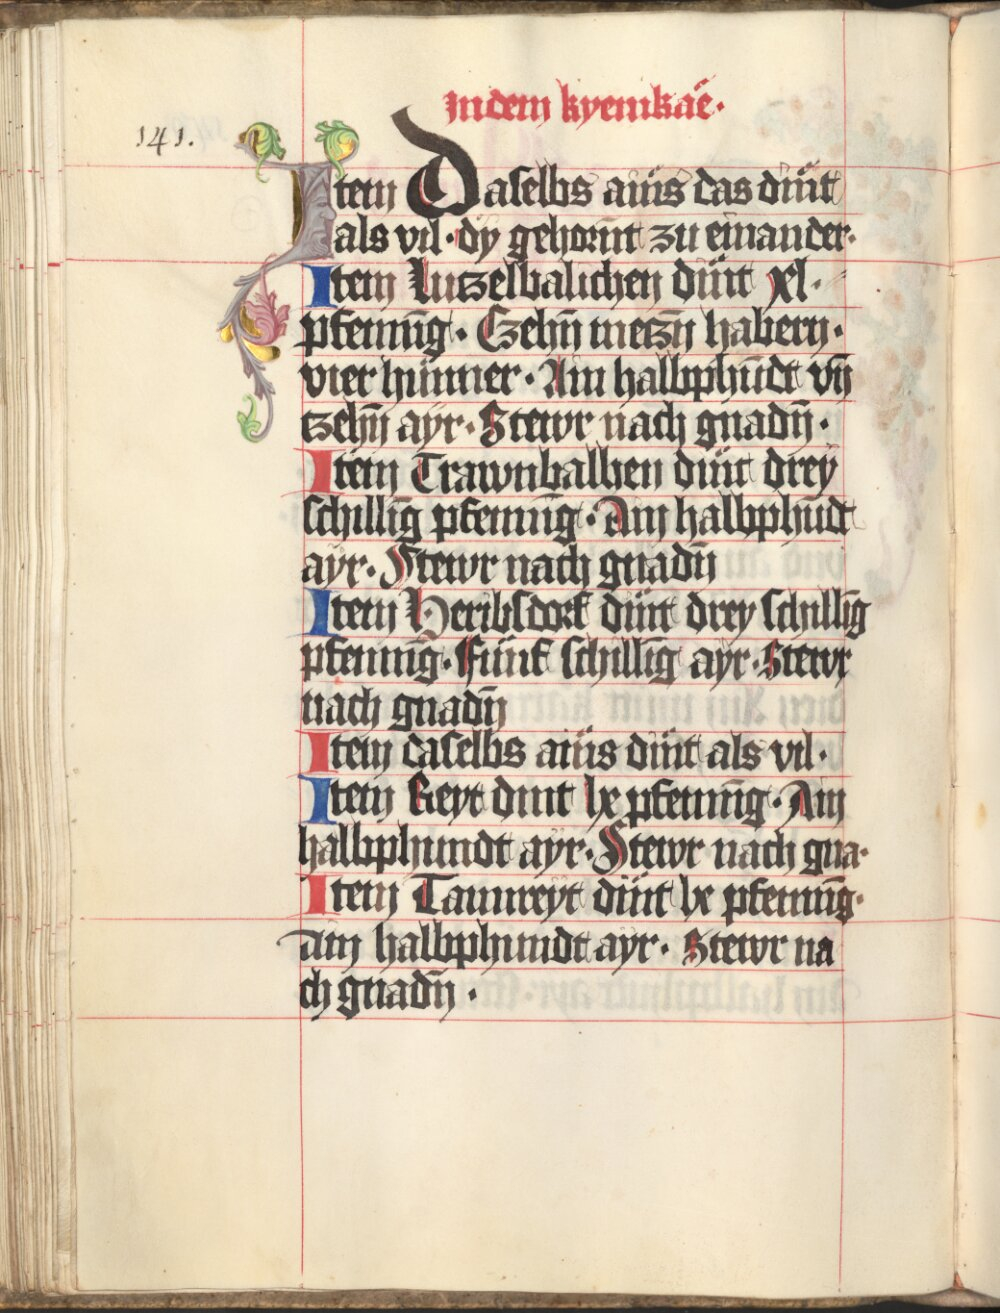 Indem kyenikaē.
141.
Item Daselbs aüis das dint
als vil. dy gehornt zu einander.
Item Lutzelbalichen dint xl.
pfenning. Czehn̄ metzn̄ habern.
vier hünner. Ain halbphūdt vn̄
tzehn̄ ayr. Stewr nach gnadn̄.
Item Trawnbalhen dint drey
schilling pfenning. Ain halbphūdt
ayr. Stewr nach gnadn̄
Item Heribsdorf dint drey schilling
pfenning. Fünf schilling ayr. Stewr
nach gnadn̄
Item daselbs aüis dint als vil.
Item Reyt dint lx pfenning. Ain
halbphundt ayr. Stewr nach gna.
Item Tannreyt dint lx pfenning.
Ain halbphundt ayr. Stewr na
ch gnadn̄.